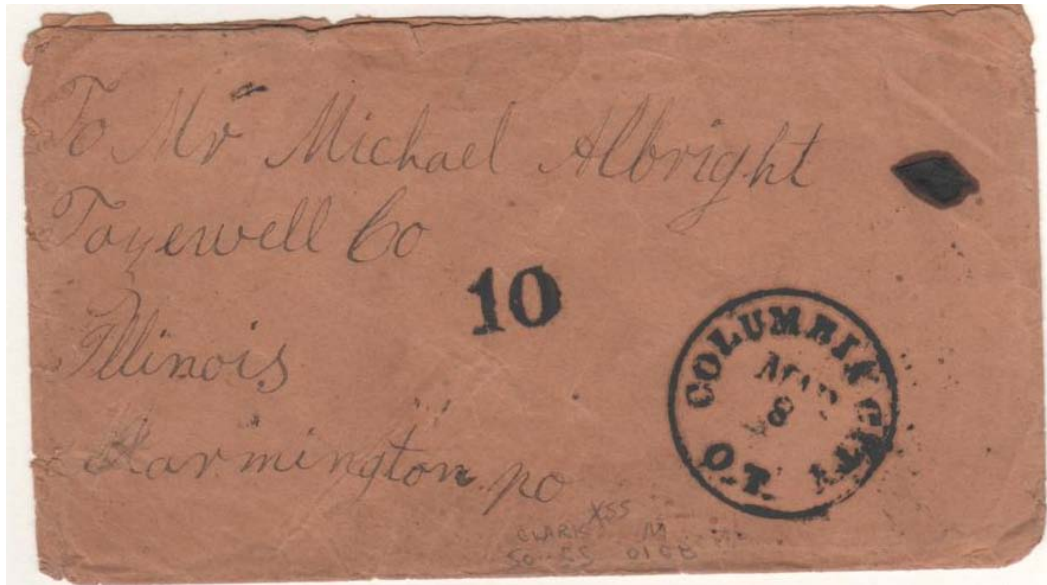 To Mr Michael Albright
Tazewell Co
10
Illinois
Farmington po
COLUMBIA CITY
MAR
8
O.T.
CLARK